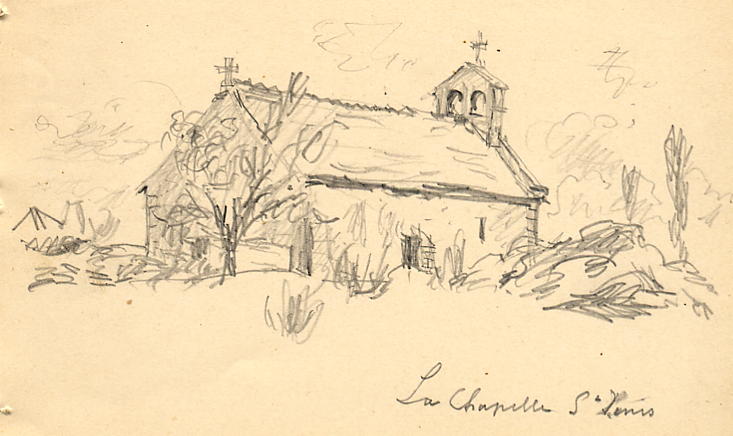 La Chapelle St Denis